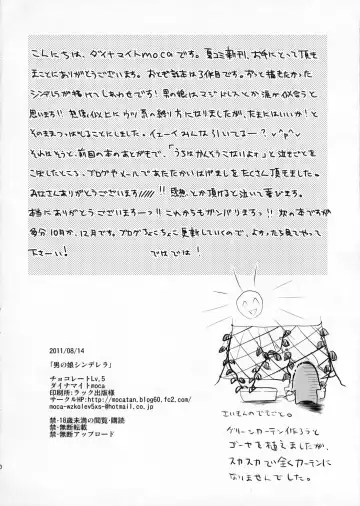 こんにちは、ダイナマイトmocaです。夏コミ新刊、お手にとって頂き
まことにありがとうございます。おとぎ話本は3作目です。ずっと描きたかった
シンデレラが描けてしあわせです!男の娘はマジドレスとか凄い似合うと
思います!!想像以上にウツ系の終り方になりましたが、たまにはいいか!と
そのままつっぱしることにしました。イェーイみんな引いてるー?
それはそうと、前回の本のあとがきで、「うちはかんそうこないよォ」と泣きごとを
こぼしたところ、ブログやメールであたたかいはげましをたくさん頂きました。
みなさんありがとうございます/////!!感想とか頂けると泣いて喜びます。
本当にありがとうございますーっ!!これからもガンバりまうっ!!次の本ですが
多分10月か、12月です。ブログちょこちょこ更新していくので、よかったら見てやって
下さーい!ではでは!
2011/08/14
「男の娘シンデレラ」
チョコレートLv.5
ダイナマイトmoca
印刷所:ラック出版様
サークルHP:http://mocatan.blog60.fc2.com/
moca-wzkolev5xs-@hotmail.co.jp
禁・18歳未満の閲覧・購読
禁・無断転載
禁・無断アップロード
さいきんのできごと。
グリーンカーテン作ろうと
ゴーヤを植えましたが、
スカスカで全くカーテンに
なりませんでした。